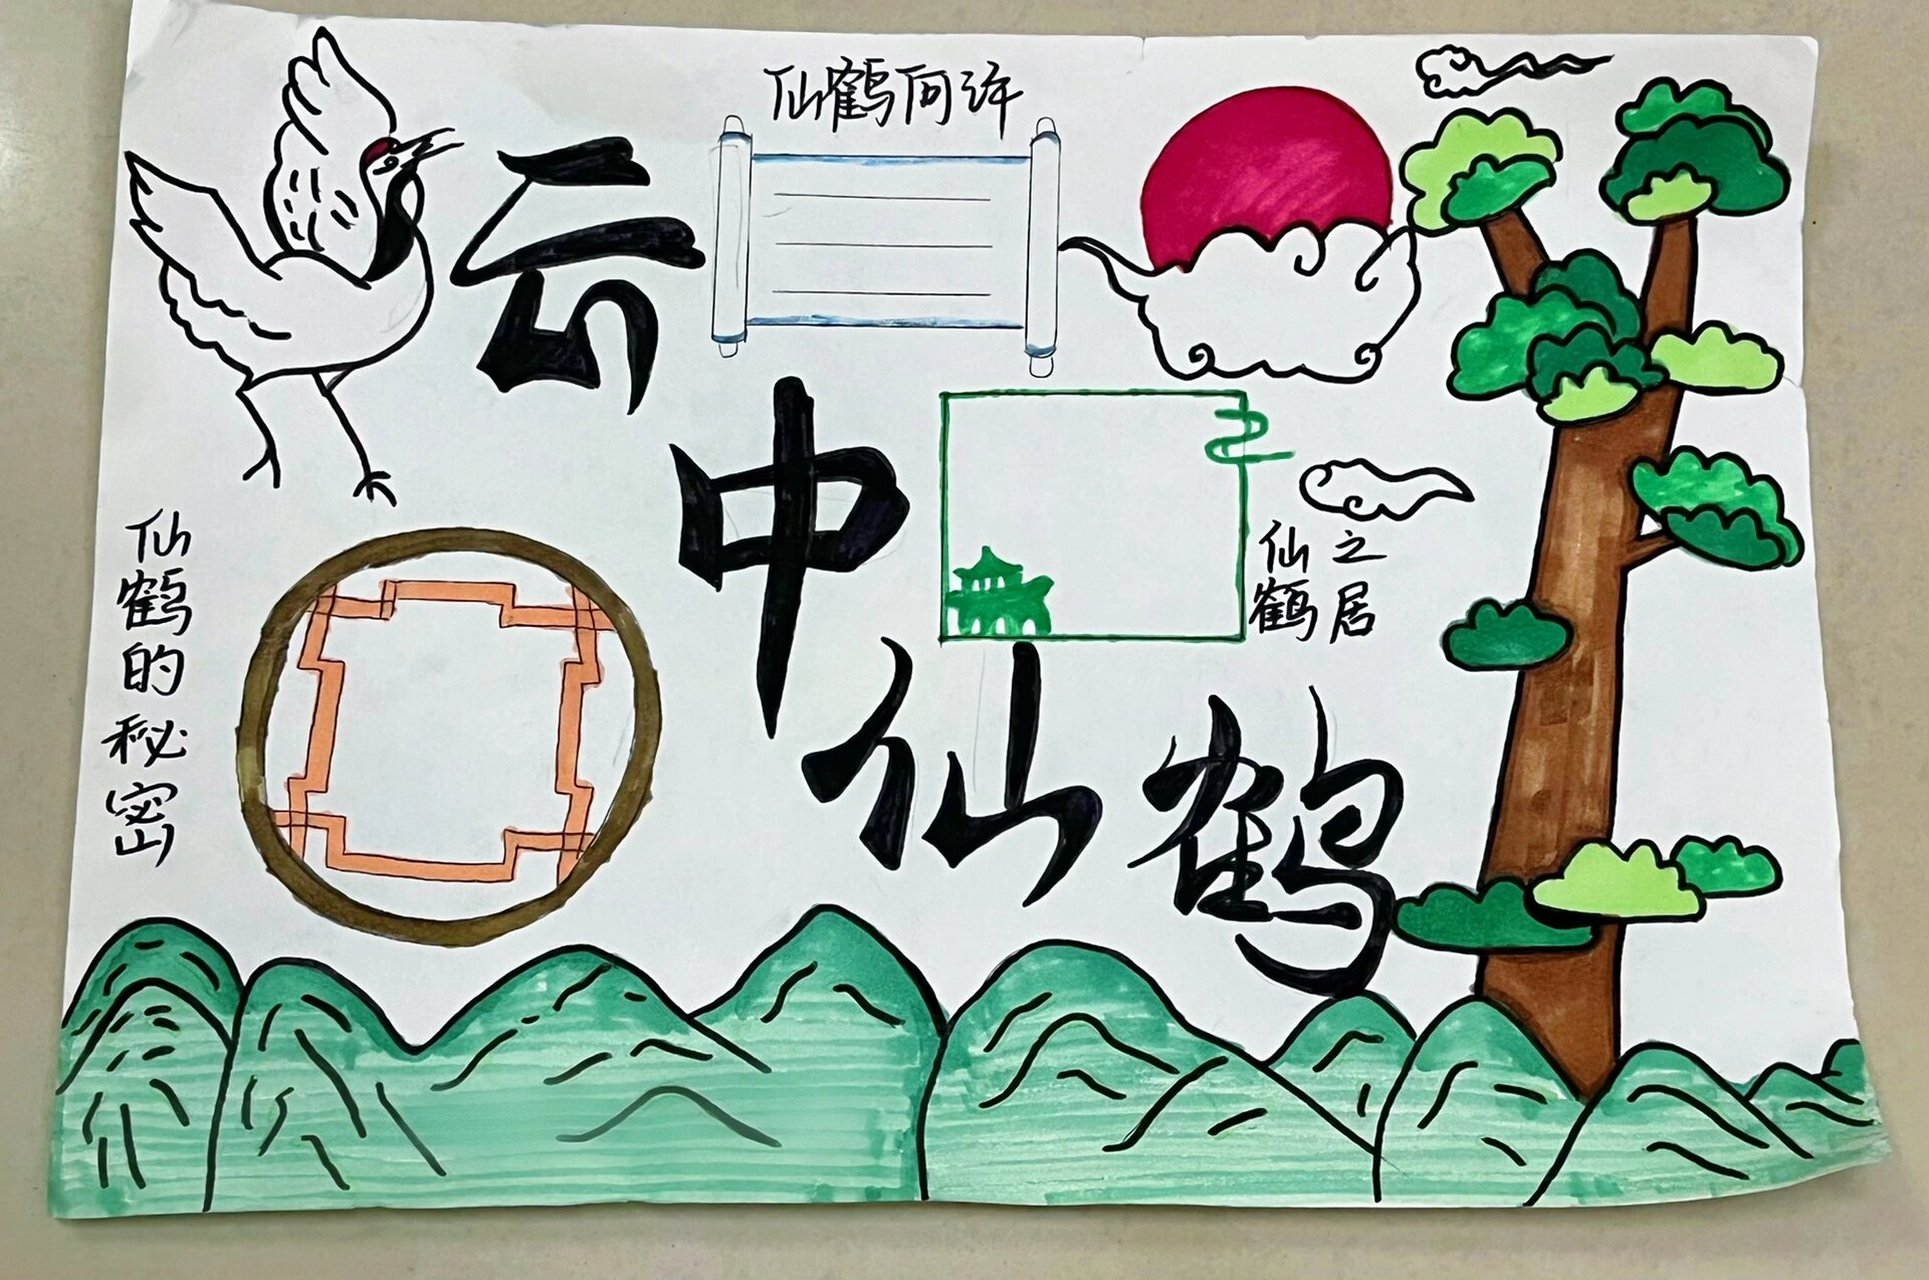 仙鹤何许
云中仙鹤
仙鹤之居
仙鹤的秘密